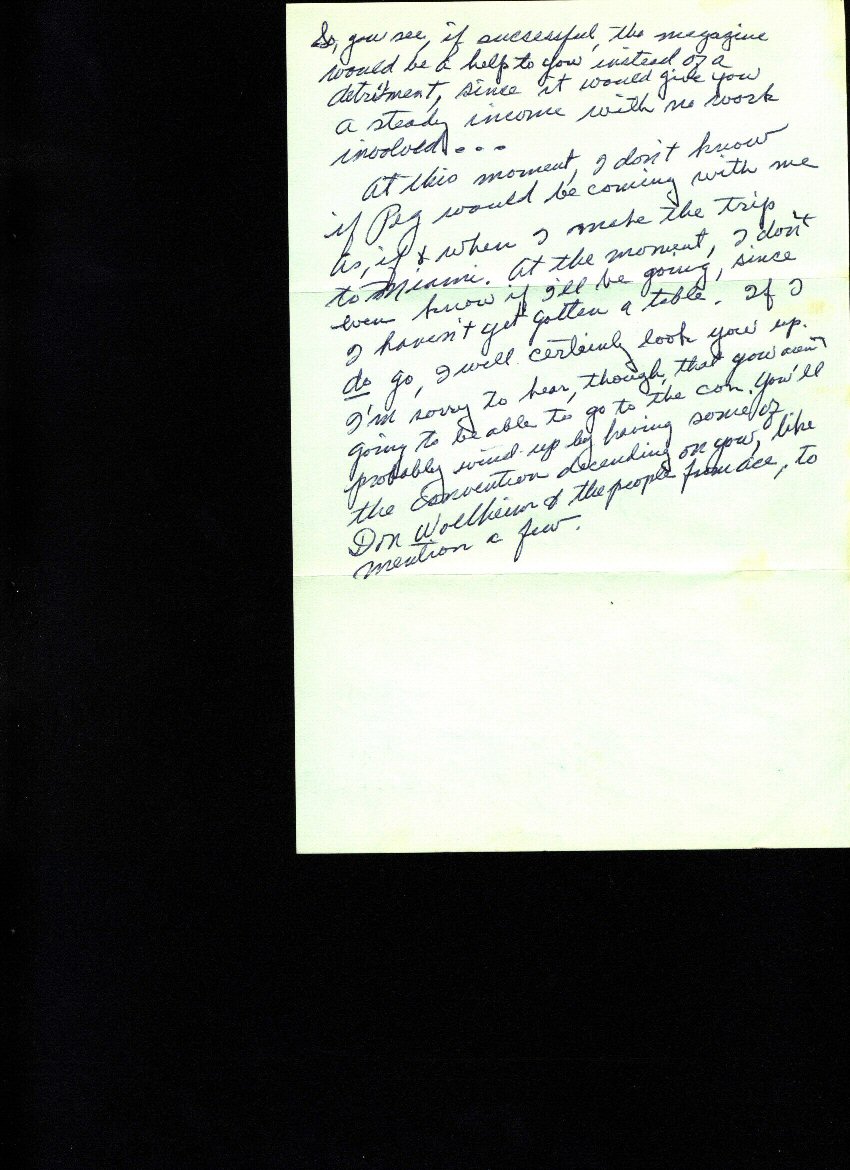 So, you see, if successful, the magazine
would be a help to you instead of a
detriment, since it would give you
a steady income with no work
involved...
At this moment, I don't know
if Peg would be coming with me
as, if & when I make the trip
to Miami. At the moment, I don't
even know if I'll be going, since
I haven't yet gotten a table. If I
do go, I will certainly look you up.
I'm sorry to hear, though, that you aren't
going to be able to go to the con. You'll
probably wind up by having some of
the convention decending on you, like
Don Wollheim & the people from ace, to
mention a few.